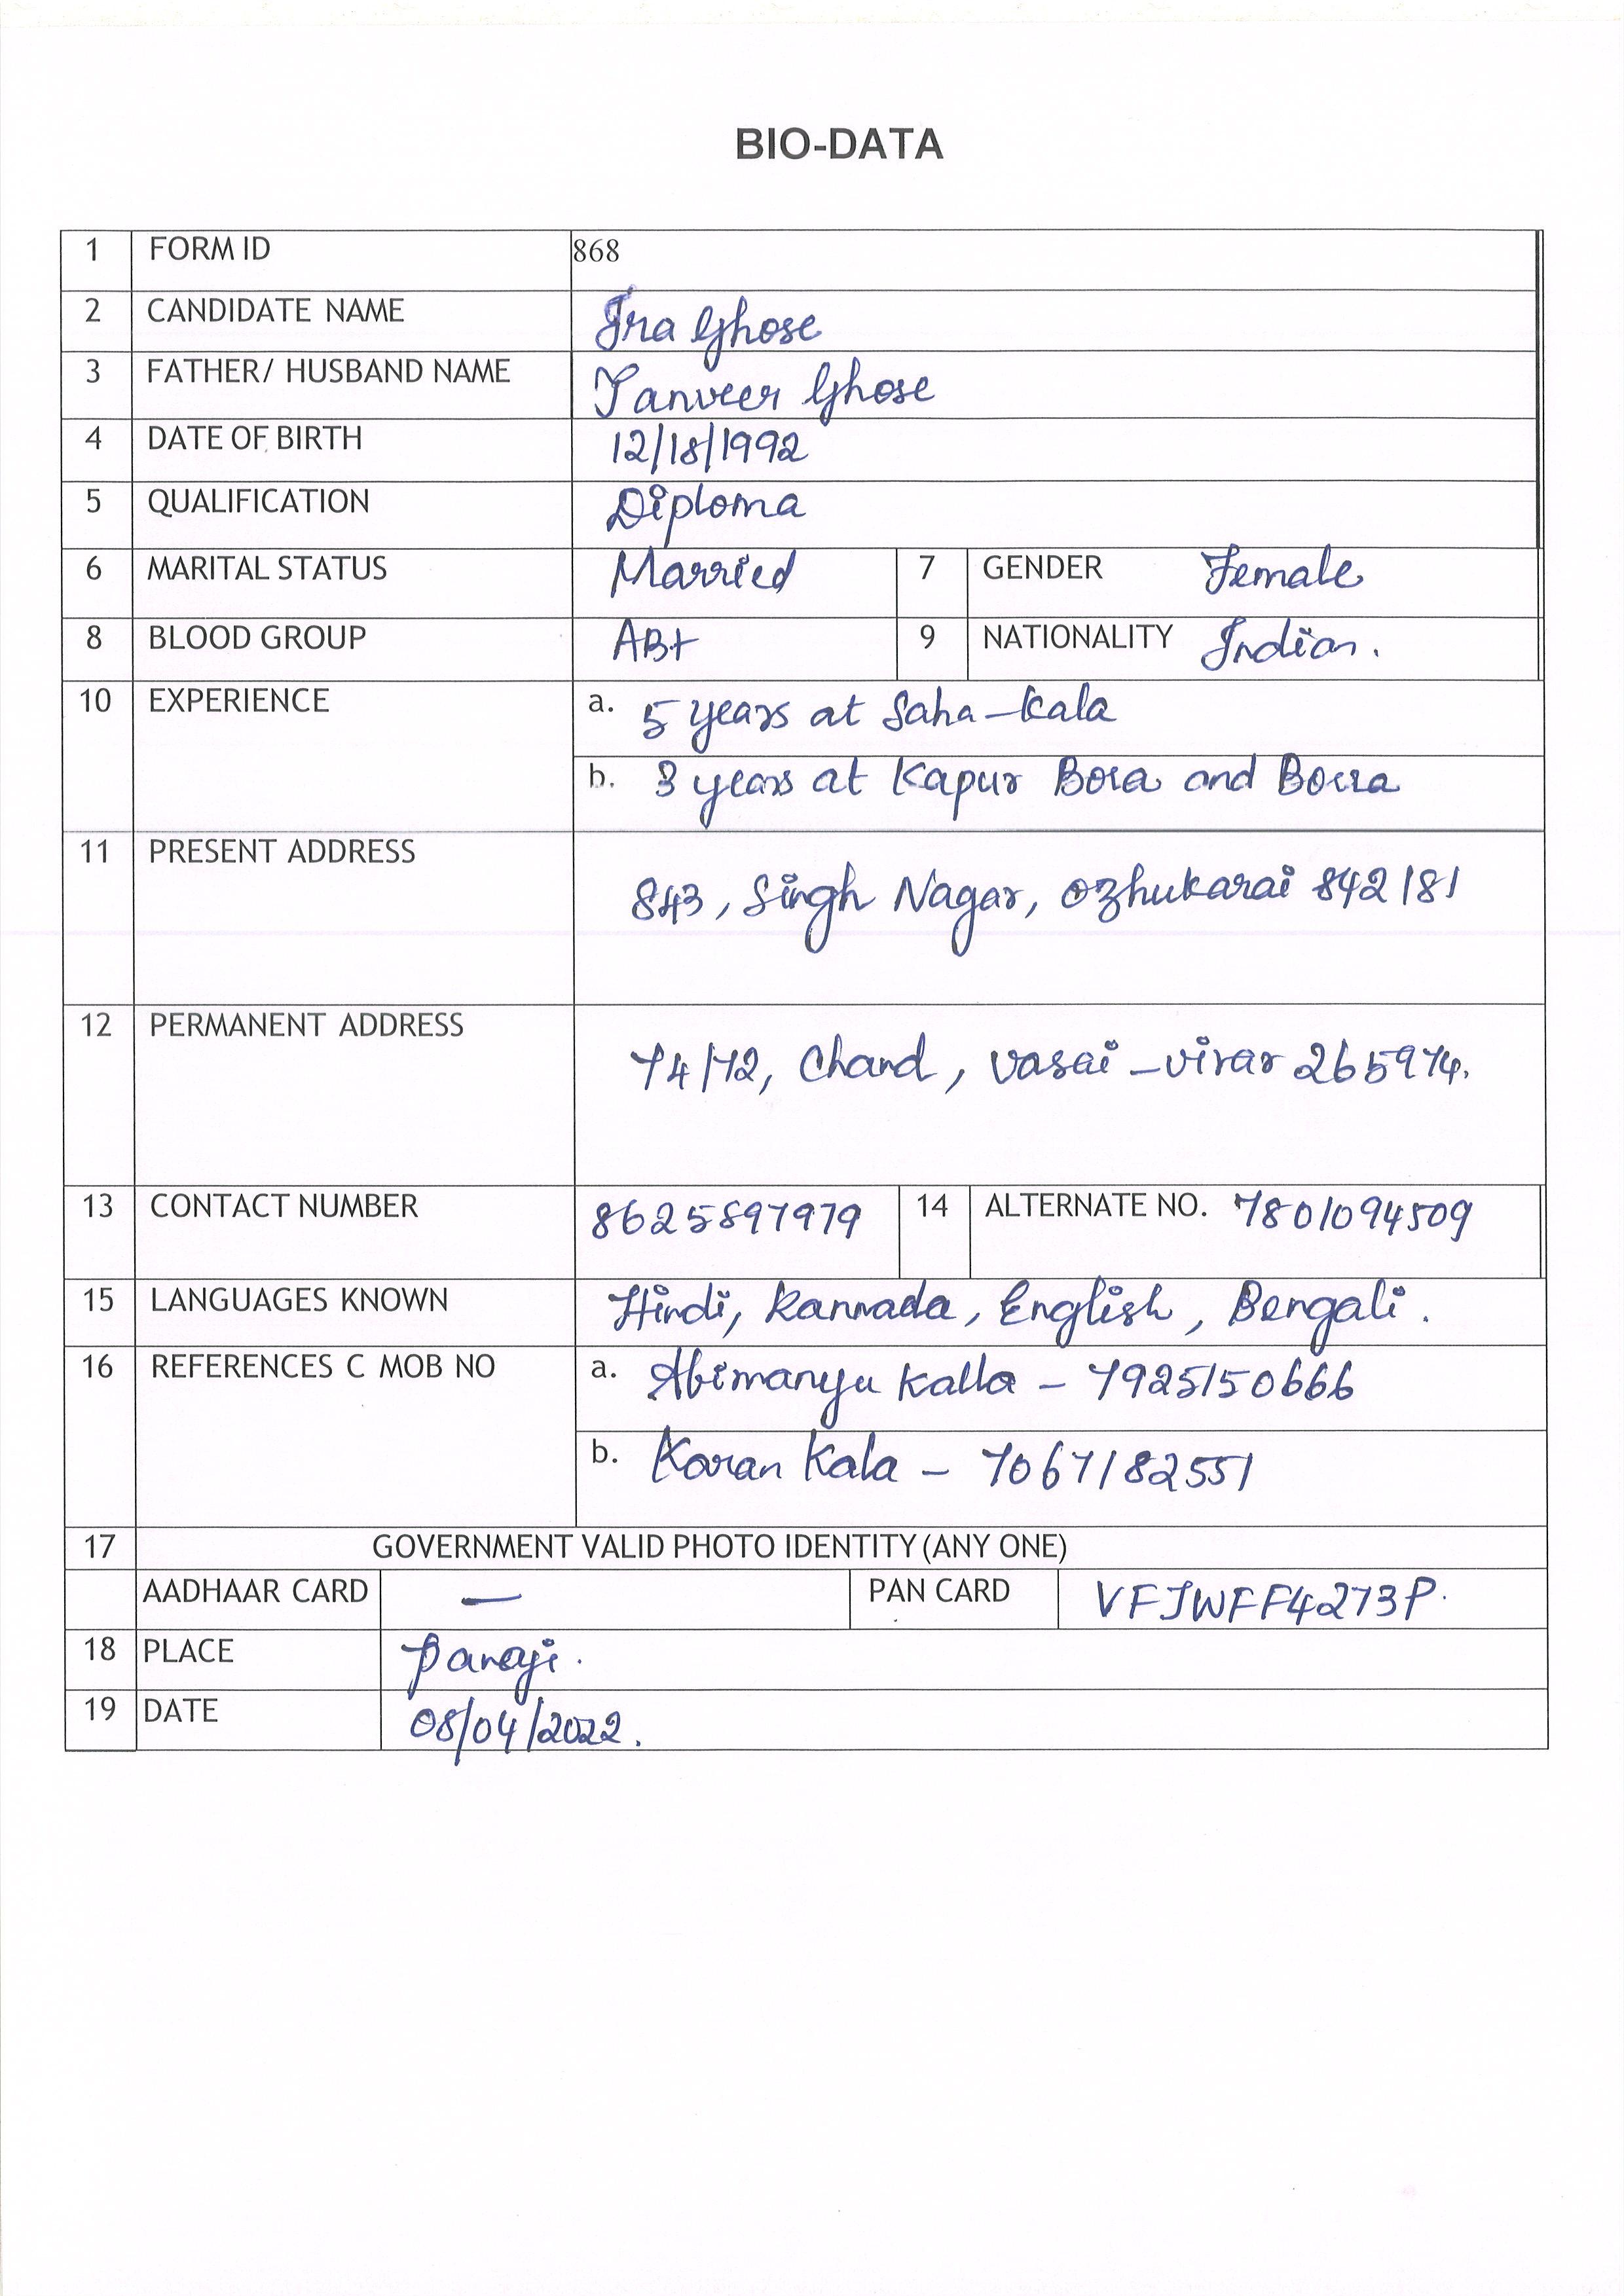 BIO-DATA
1 FORM ID 868
2 CANDIDATE NAME Ira Ghose
3 FATHER/ HUSBAND NAME Tanveer Ghose
4 DATE OF BIRTH 12/18/1992
5 QUALIFICATION Diploma
6 MARITAL STATUS Married 7 GENDER Female
8 BLOOD GROUP AB+ 9 NATIONALITY Indian.
10 EXPERIENCE a. 5 years at Saha-Kala
b. 3 years at Kapur Bora and Borra
11 PRESENT ADDRESS
843, Singh Nagar, Ozhukarai 842181
12 PERMANENT ADDRESS
74/72, Chand, Vasai-Virar 265974.
13 CONTACT NUMBER 8625897979 14 ALTERNATE NO. 7801094509
15 LANGUAGES KNOWN Hindi, Kannada, English, Bengali.
16 REFERENCES C MOB NO a. Abimanyu Kalla - 7925150666
b. Karan Kala - 7067182551
17 GOVERNMENT VALID PHOTO IDENTITY (ANY ONE)
AADHAAR CARD — PAN CARD VFJWFF4273P.
18 PLACE Panaji.
19 DATE 08/04/2022.